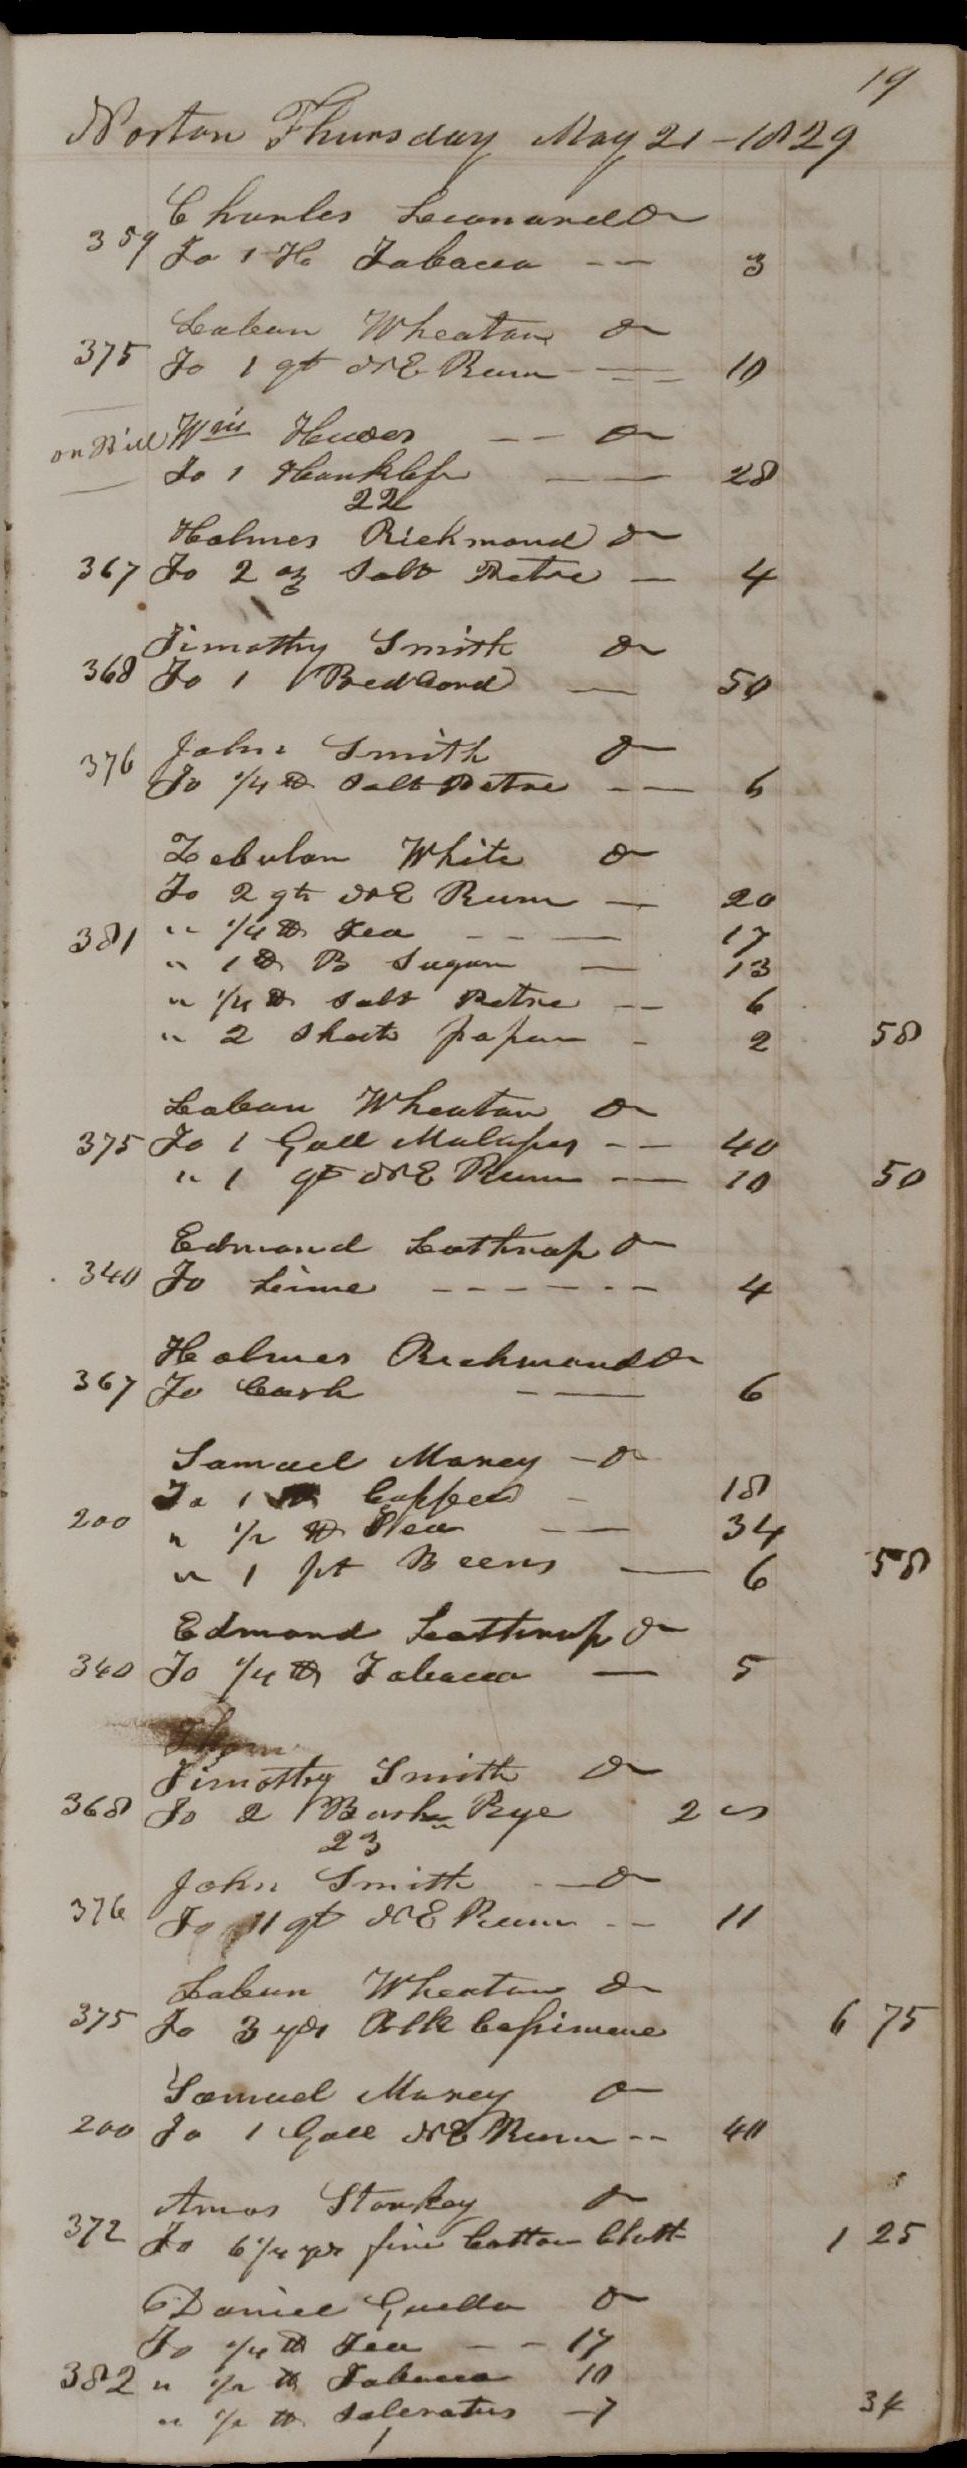 19
Norton Thursday May 21 - 1829
Charles Leonard Dr
359 To 1 H. Tobacco -- 3
Laban Wheaton Dr
375 To 1 qt N E Rum -- 10
on Bill Wm -- Dr
To 1 Hankf -- 28
22
Holmes Richmond Dr
367 To 2 oz Salt Petre - 4
Timothy Smith Dr
368 To 1 Bed Cord - 50
John Smith Dr
376 To 1/4 lb Salt Petre -- 6
Zebulon White Dr
To 2 qts N E Rum - 20
381 " 1/4 lb Tea --- 17
" 1 lb B Sugar - 13
" 1/4 lb Salt Petre -- 6
" 2 Sheets paper - 2 58
Laban Wheaton Dr
375 To 1 Gall Molasses -- 40
" 1 qt N E Rum -- 10 50
Edmond Lothrop Dr
340 To Lime ------ 4
Holmes Richmond Dr
367 To Cash -- 6
Samuel Morey - Dr
To 1 lb Coffee - 18
200 " 1/2 lb Tea -- 34
" 1 pt Beens - 6 58
Edmond Lothrop Dr
340 To 1/4 lb Tobacco - 5
Timothy Smith Dr
368 To 2 Bush Rye 2 00
23
John Smith -- Dr
376 To 1 qt N E Rum -- 11
Laban Wheaton Dr
375 To 3 yds Blk Cassimere 6 75
Samuel Morey Dr
200 To 1 Gall N E Rum -- 40
Amos Starkey Dr
372 To 6 1/4 yds fine Cotton Cloth 1 25
Daniel Dr
To 1/4 lb Tea -- 17
382 " 1/2 lb Tobacco 10
" 1/2 lb Saleratus - 7 34